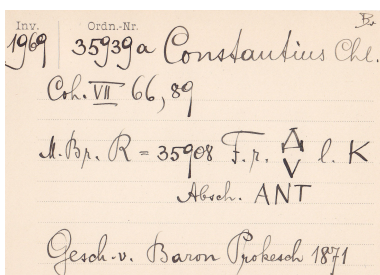 Inv. Ordn.-Nr. Br
1969 35939a Constantius Chl.
Coh. VII 66, 89
M. Br. R = 35908 F. r. Δ l. K
V
Absch. ANT
Gesch. v. Baron Prokesch 1871